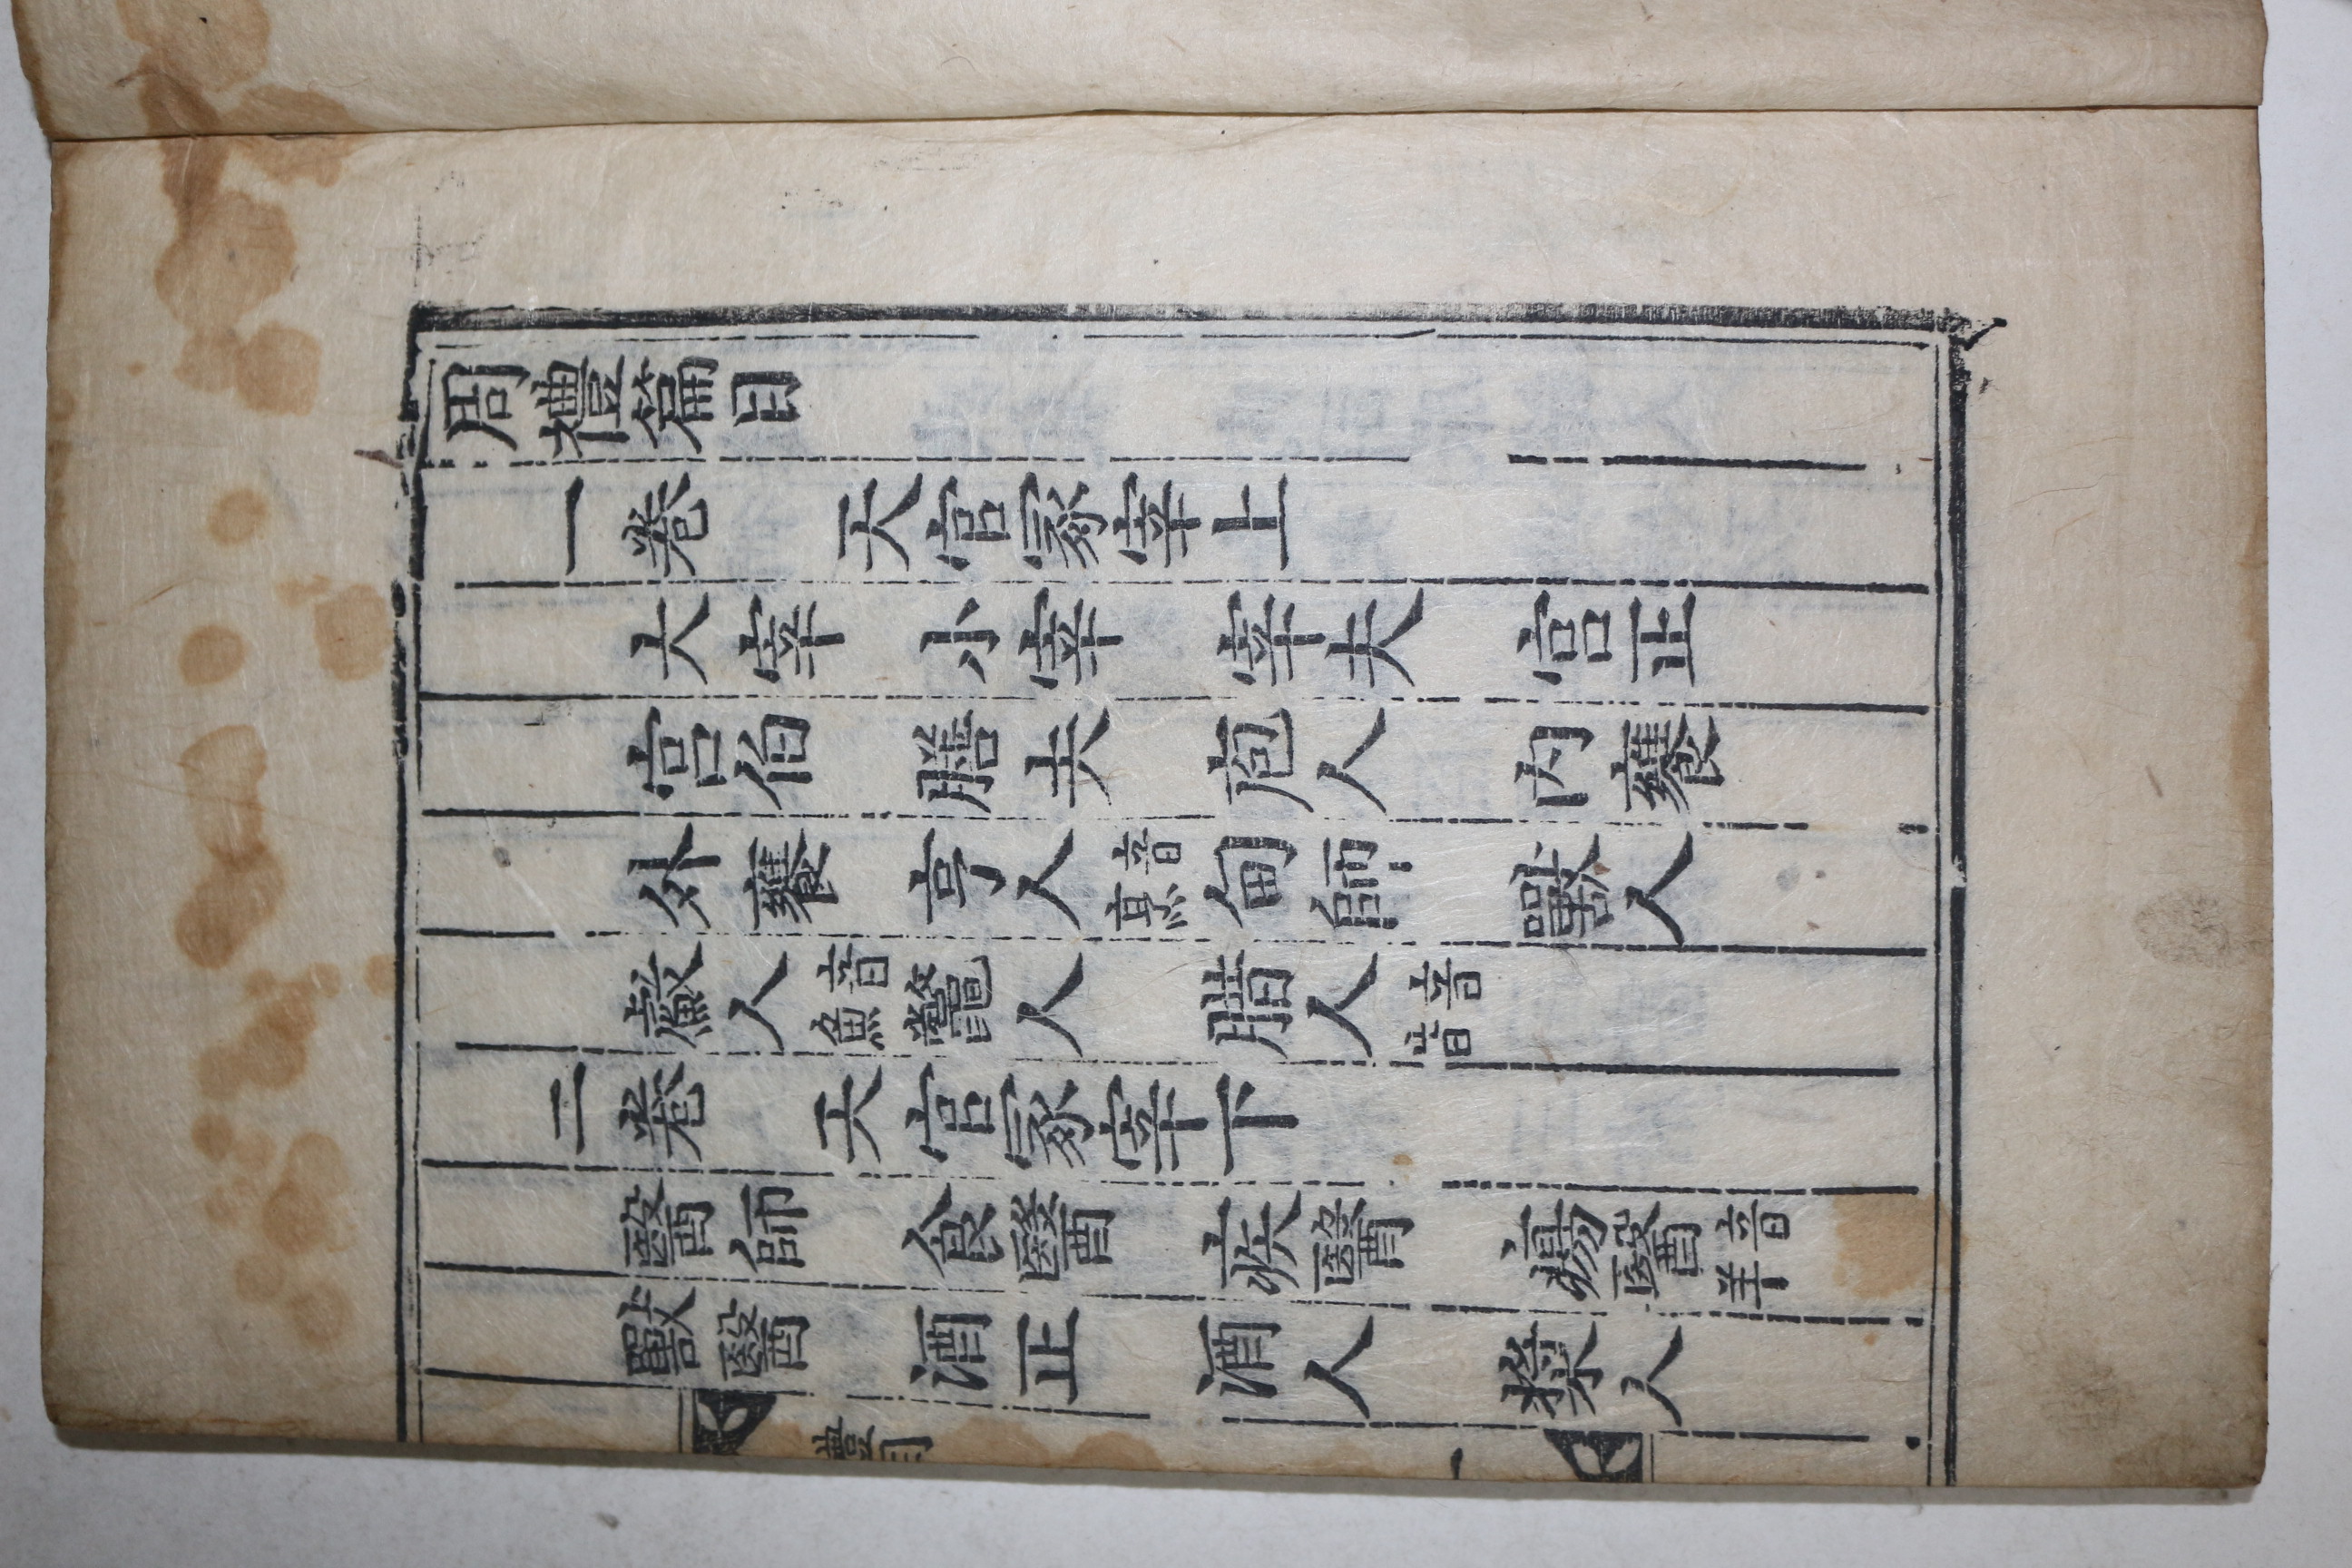 周禮篇目
一卷 天官冢宰上
大宰 小宰 宰夫 宫正
宫伯 膳夫 庖人 内饔
外饔 亨人音烹 甸師 獸人
䱷人音魚 鼈人 腊人音昔
二卷 天官冢宰下
醫師 食醫 疾醫 瘍醫音羊
獸醫 酒正 酒人 漿人
禮目 一